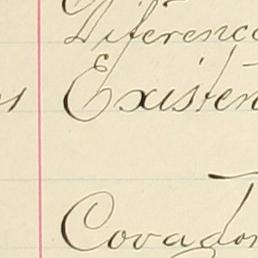 Diferenc
Existen
Covadon